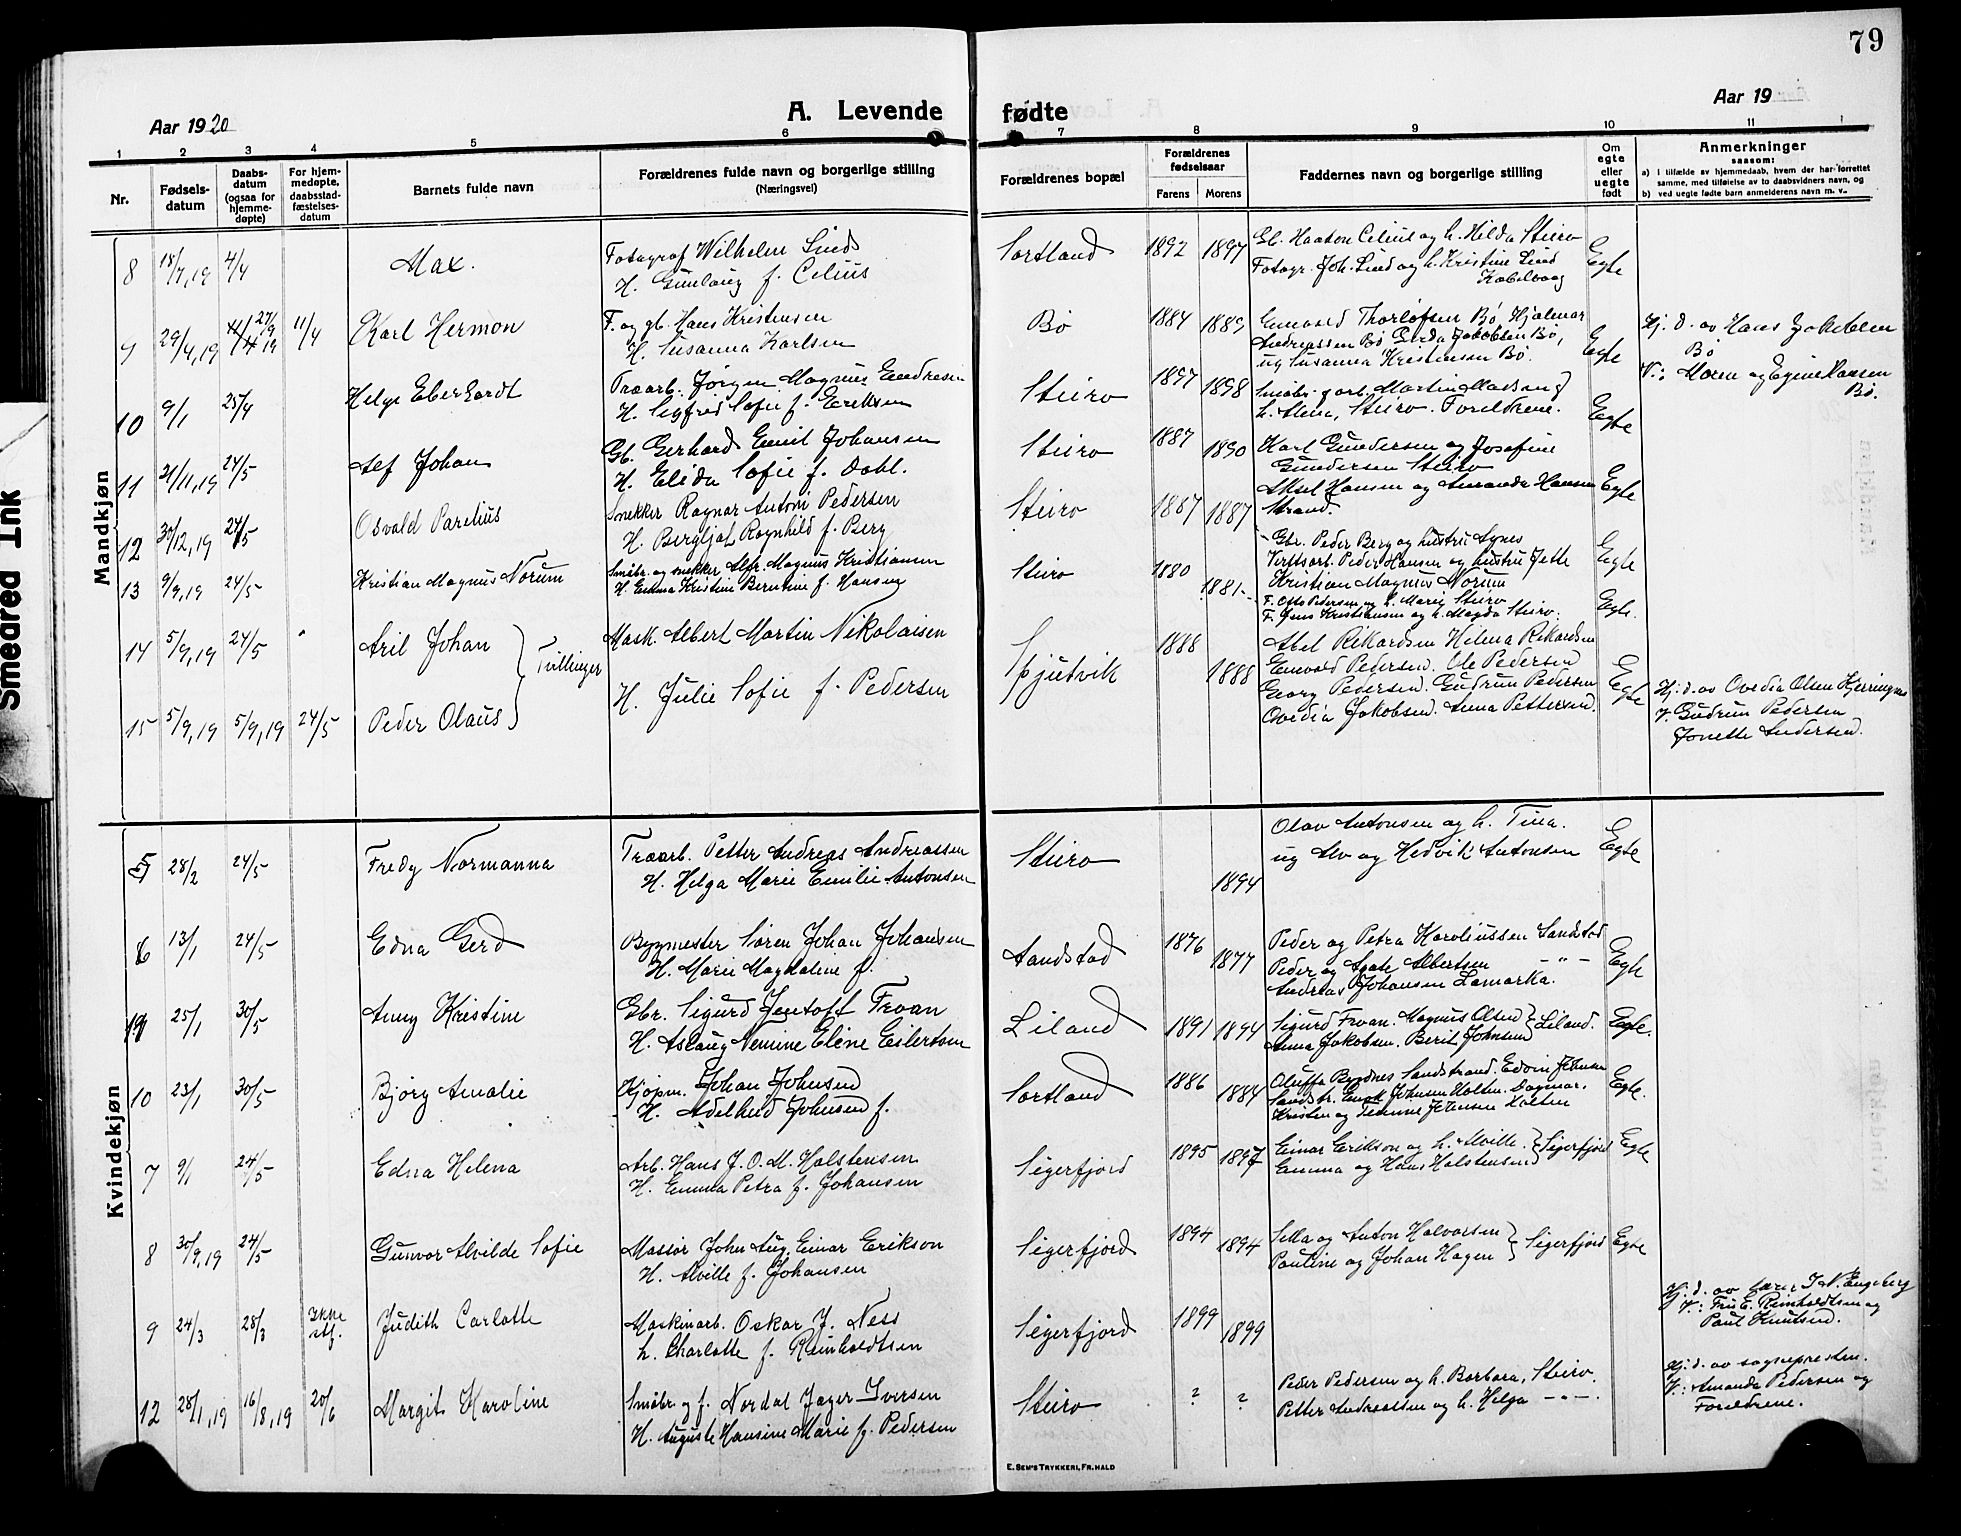 79
Aar 1920
A. Levende
fødte
Aar 19
1 2 3 4 5 6 7 8 9 10 11
Nr.
Fødsels-
datum
Daabs-
datum
(ogsaa for
hjemme-
døpte)
For hjem-
medøpte,
daabsstad-
fæstelses-
datum
Barnets fulde navn
Forældrenes fulde navn og borgerlige stilling
(Næringsvei)
Forældrenes bopæl
Forældrenes
fødselsaar
Farens Morens
Faddernes navn og borgerlige stilling
Om
egte
eller
uegte
født
Anmerkninger
saasom:
a) i tilfælde av hjemmedaab, hvem der har forrettet
samme, med tilføielse av to daabsvidners navn, og
b) ved uegte fødte barn anmelderens navn m. v.
Smeared Ink
Mandkjøn
8 18/7,19 4/4 Max. Fotograf Wilhelm Lind
H. Gunlaug f. Celius
Sortland 1892 1897
Gb. Haakon Celius og h. Hilda Steiro
Fotogr. Joh. Lind og h. Kristine Lind
Kabelvaag
Egte
9 29/4,19 11/4 Karl Hermon F. og gb. Hans Kristensen
H. Susanna Karlsen
Bø 1884 1889
Enevold Thorlofsen Bø Hjalmar
Andreassen Bø Gerda Jakobsen Bø,
og Susanna Kristensen Bø.
Egte
Hj. d. av Hans Jakobsen
Bø
V.: Moren og Egine Hansen
Bø.
10 9/1 25/4 Helge Eberhardt Træarb. Jørgen Magnus Endresen
H. Sigfrid Sofie f. Eriksen
Steiro 1897 1898
Småbr. f. arb. Martin Madsen
h. Stina, Steiro. Foreldrene.
Egte
11 21/11,19 24/5 Alf Johan Gb. Gerhard Emil Johansen
H. Elida Sofie f. Dahl.
Steiro 1887 1890
Karl Gundersen og Josefine
Gundersen Steiro
Aksel Hansen og Amanda Hansen
Strand
Egte
12 30/12,19 24/5 Osvald Parelius Snekker Ragnar Anton Pedersen
H. Bergljot Ragnhild f. Berg
Steiro 1887 1887
Gbr. Peder Berg og hustru Agnes
Verftsarb. Peder Hansen og hustru Jette
Egte
13 9/9,19 24/5 Kristian Magnus Norum Småbr. og snekker Alfr. Magnus Kristiansen
H. Emma Kristine Berntine f. Hansen
Steiro 1880 1881
Kristian Magnus Norum
F. Otto Pedersen og h. Marie Steiro
F. Jens Kristiansen og h. Magda Steiro.
Egte.
14 5/9,19 24/5 Aril Johan Tvillinger Mask. Albert Martin Nikolaisen
H. Julie Sofie f. Pedersen
Kjutvik 1888 1888
Abel Rikardsen Helena Rikardsen
Enevold Pedersen. Ole Pedersen
Georg Pedersen. Gudrun Pedersen
Ovedia Jakobsen. Anna Pettersen.
Egte
15 5/9,19 5/9,19 24/5 Peder Olaus
Hj. d. av Ovedia Olsen Kjerringnes
V. Gudrun Pedersen
Jonette Andersen.
Kvindekjøn
5 28/2 24/5 Fredy Normanna Træarb. Petter Andreas Andreassen
H. Helga Marie Emilie Antonsen
Steiro 1894
Olav Antonsen og h. Tina.
og Alv og Hedvik Antonsen
Egte
6 13/1 24/5 Edna Gerd Bygmester Søren Johan Johansen
H. Marie Magdaline f.
Sandstad 1876 1877
Peder og Petra Karoliussen Sandstad
Peder og Agate Albertsen - " -
Andreas Johansen Lamarka.
Egte
11 25/1 30/5 Anny Kristine Gbr. Sigurd Jentoft Trvan
H. Aslaug Nenine Elene Eilertsen
Liland 1891 1894
Sigurd Frvan. Magnus Olsen
Anna Jakobsen. Berit Johnsen Liland.
Egte.
10 23/1 30/5 Bjørg Amalie Kjøpm. Johan Johnsen
H. Adelheid Johnsen f.
Sortland 1886 1884
Oluffa Bynes Sandstrand. Edvin Johnsen
Sandstr. Enok Johnsen Holten. Dagmar.
Kristen og Temine Johnsen Holten
Egte.
7 9/1 24/5 Edna Helena Arb. Hans J. O. M. Holstensen
H. Emma Petra f. Johansen
Sigerfjord 1895 1897
Einar Erikson og h. Alville.
Emma og Hans Holstensen Sigerfjord
Egte
8 30/9,19 24/5 Gunvor Alvilde Sofie Massør John Aug. Einar Erikson
H. Alville f. Johansen
Sigerfjord 1894 1894
Sella og Anton Halvorsen
Pauline og Johan Hagen Sigerfjord
Egte
9 24/3 28/3 Ikke stf. Judith Carlotte Maskinarb. Oskar J. Ness
h. Charlotte f. Reinholdtsen
Sigerfjord 1899 1899
Hj. d. av lærer I. N. Engeberg
V.: Fru E. Reinholdtsen og
Paul Knutsen.
12 28/1,19 16/8,19 20/6 Margit Karoline Småbr. og f. Nordal Jager Iversen
H. Auguste Hansine Marie f. Pedersen
Steiro ? ?
Peder Pedersen og h. Barbara, Steiro.
Petter Andreassen og h. Helga - " -
Hj. d. av sognepresten.
V.: Amanda Pedersen og
Foreldrene.
E. Sem's Trykkeri, Fr.hald